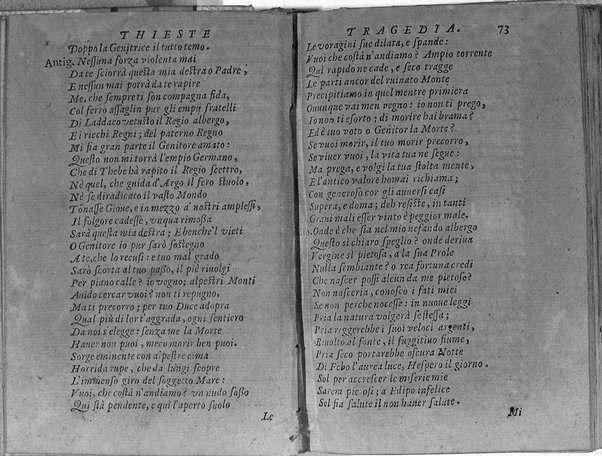 THIESTE
Doppo la Genitrice il tutto temo.
Antig. Nessuna forza violenta mai
Da te sciorrà questa mia destra o Padre,
E nessun mai potrà da te rapire
Me, che sempre ti son compagna fida,
Col ferro assaglin pur gli empij fratelli
Di Laddaco vetusto il Regio albergo,
E i ricchi Regni; del paterno Regno
Mi sia gran parte il Genitore amato:
Questo non mi torrà l'empio Germano,
Che di Thebe hà rapito il Regio scettro,
Nè quel, che guida d'Argo il fero stuolo,
Nè se diradicato il vasto Mondo
Tonasse Gioue, e in mezzo a' nostri amplessi,
Il folgore cadesse, vnqua rimossa
Sarà questa mia destra; E benche'l vieti
O Genitore io pur sarò sostegno
A te, che lo recusi: e tuo mal grado
Sarà scorta al tuo passo, il piè riuolgi
Per piano calle? io vegno; alpestri Monti
Auido cercar vuoi? non ti repugno,
Ma ti precorro; per tuo Duce adopra
Qual più di lor t'aggrada, ogni sentiero
Da noi s'elegge: senza me la Morte
Hauer non puoi, meco morir ben puoi.
Sorge eminente con alpestre cima
Horrida rupe, che da lungi scopre
L'immenso giro del soggetto Mare:
Vuoi, che costà n'andiamo? vn nudo sasso
Qui stà pendente, e quì l'aperto suolo
Le
TRAGEDIA. 73
Le voragini sue dilata, e spande:
Vuoi che costà n'andiamo? Ampio torrente
Quì rapido ne cade, e seco tragge
Le parti ancor del ruinato Monte
Precipitiamo in quel mentre primiera
Ouunque vai men vegno: io non ti prego,
Io non ti esorto; di morire hai brama?
Ed è tuo voto o Genitor la Morte?
Se vuoi morir, il tuo morir precorro,
Se viuer vuoi, la vita tua ne segue:
Ma prega, e volgi la tua stolta mente,
E l'antico valore homai richiama;
Con generoso cor gli auuersi casi
Supera, e doma; deh resiste, in tanti
Graui mali esser vinto è peggior male.
Onde è che sia nel mio nefando albergo
Questo sì chiaro speglio? onde deriua
Vergine sì pietosa, a la sua Prole
Nulla sembiante? o rea fortuna credi
Che nascer possi alcun da me pietoso?
Non nasceria, conosco i fati miei
Se non perche nocesse: in nuoue leggi
Pria la natura volgerà se stessa;
Pria reggerebbe i suoi veloci argenti,
Riuolto al fonte, il fuggitiuo fiume,
Pria seco portarebbe oscura Notte
Di Febo l'aurea luce, Hespero il giorno.
Sol per accrescer le miserie mie
Sarem pie osi; a Edipo infelice
Sol sia salute il non hauer salute.
Mi